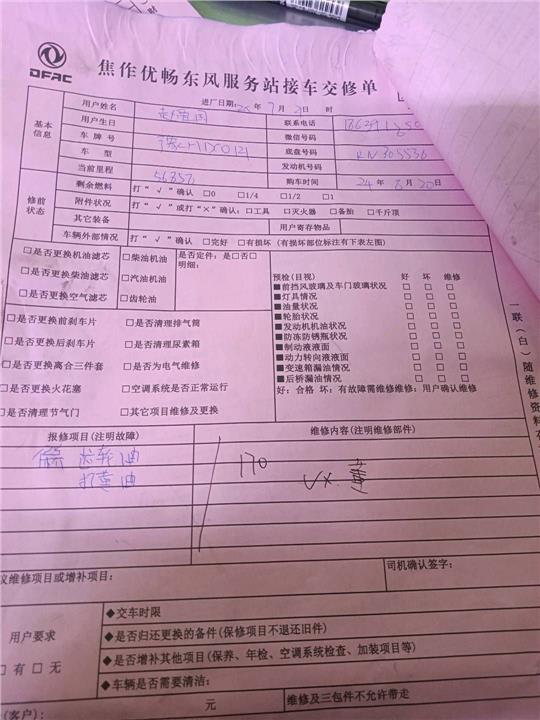 DFAC
焦作优畅东风服务站接车交修单
进厂日期: 25 年 7 月 2 日 时
基本信息
用户姓名
用户生日 联系电话
车牌号 微信号码
车型 底盘号码
当前里程 56357 发动机号码
购车时间 24 年 6 月 20 日
修前状态
剩余燃料 打“√”确认 □0 □1/4 □1/2 □1
附件状况 打“√”或打“×”确认:□工具 □灭火器 □备胎 □千斤顶
其它装备 用户寄存物品
车辆外部情况 打“√”确认 □完好 □有损坏(有损坏部位标注有下表左图)
□是否更换机油滤芯 □柴油机油 是否定件:是□否□
□是否更换柴油滤芯 □汽油机油 明细:
□是否更换空气滤芯 □齿轮油
预检(目视) 好 坏 维修
■前挡风玻璃及车门玻璃状况 □ □ □
■灯具情况 □ □ □
■油量状况 □ □ □
■轮胎状况 □ □ □
■发动机机油状况 □ □ □
■防冻防锈瓶状况 □ □ □
■制动液液面 □ □ □
■动力转向液液面 □ □ □
■变速箱漏油情况 □ □ □
■后桥漏油情况 □ □ □
好:合格 坏:有故障需维修维修:用户确认维修
□是否更换前刹车片 □是否清理排气筒
□是否更换后刹车片 □是否清理尿素箱
□是否更换离合三件套 □是否为电气维修
□是否更换火花塞 □空调系统是否正常运行
□是否清理节气门 □其它项目维修及更换
一联(白)随维修资料存
报修项目(注明故障) 维修内容(注明维修部件)
齿轮油 170
打黄油
议维修项目或增补项目:
司机确认签字:
用户要求
□有 □无
◆交车时限
◆是否归还更换的备件(保修项目不退还旧件)
◆是否增补其他项目(保养、年检、空调系统检查、加装项目等)
◆车辆是否需要清洁:
(客户): 元 维修及三包件不允许带走